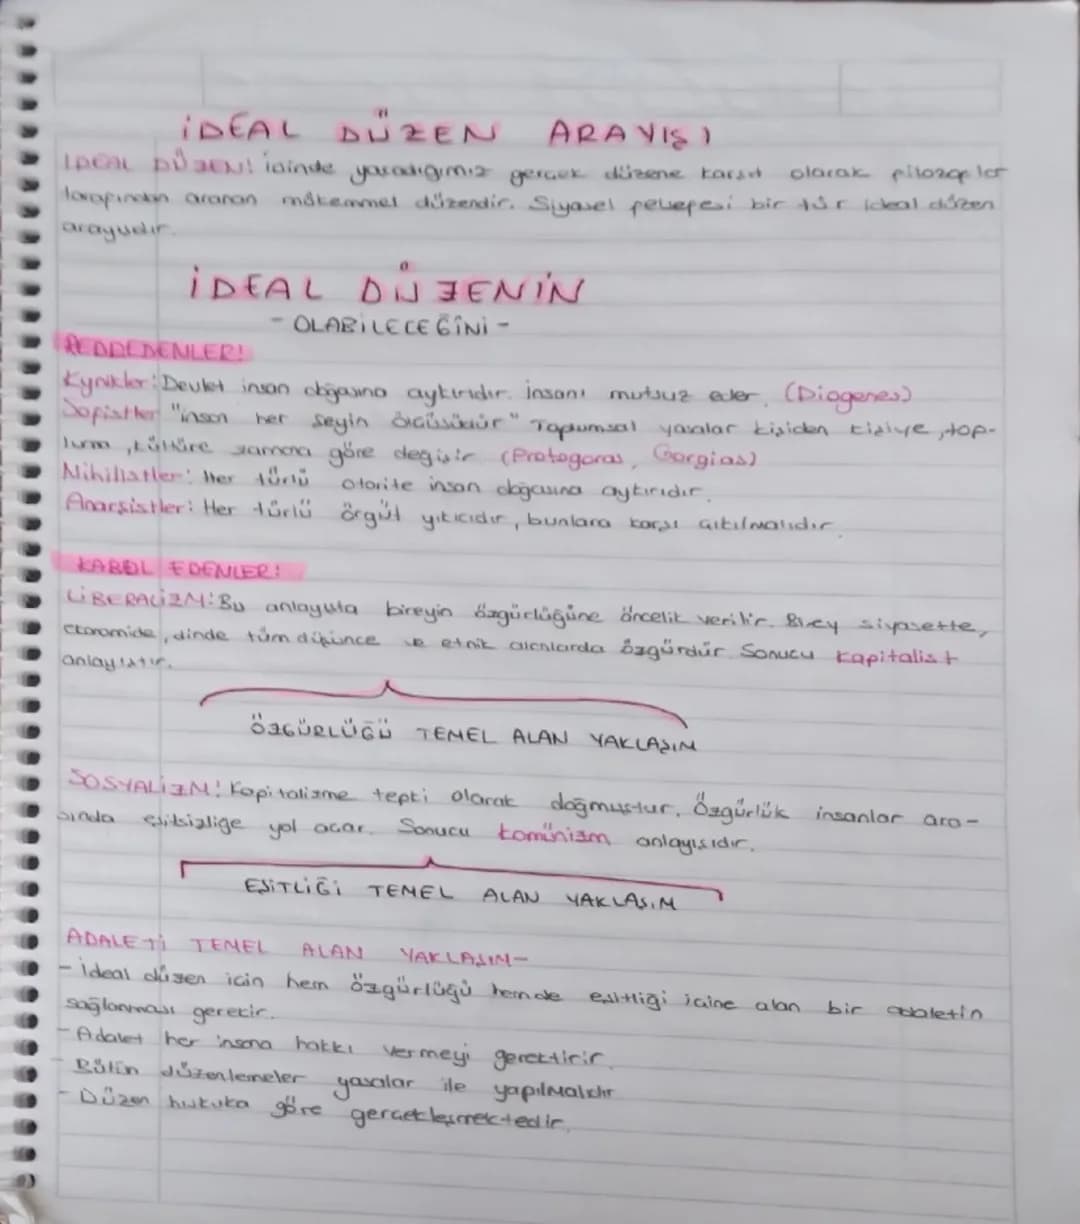 İDEAL DÜZEN ARAYIŞI
İDEAL DÜZEN: içinde yaşadığımız gerçek düzene karşıt olarak filozoflar
tarafından aranan mükemmel düzendir. Siyasel felsefesi bir tür ideal düzen
arayışıdır.
İDEAL DÜZENİN
- OLABİLECEĞİNİ -
REDDEDENLER:
Kynikler: Devlet insan doğasına aykırıdır. İnsanı mutsuz eder. (Diogenes)
Sofistler "insan her şeyin ölçüsüdür" Toplumsal yasalar kişiden kişiye, top-
luma, kültüre zamana göre değişir (Protogoras, Gorgias)
Nihilistler: Her türlü otorite insan doğasına aykırıdır.
Anarşistler: Her türlü örgüt yıkıcıdır, bunlara karşı çıkılmalıdır.
KABUL EDENLER:
LİBERALİZM: Bu anlayışta bireyin özgürlüğüne öncelik verilir. Birey siyasette,
ekonomide, dinde tüm düşünce ve etnik alanlarda özgürdür. Sonucu kapitalist
anlayıştır.
ÖZGÜRLÜĞÜ TEMEL ALAN YAKLAŞIM
SOSYALİZM: Kapitalizme tepki olarak doğmuştur. Özgürlük insanlar ara-
sında eşitsizliğe yol açar. Sonucu komünizm anlayışıdır.
EŞİTLİĞİ TEMEL ALAN YAKLAŞIM
ADALETİ TEMEL ALAN YAKLAŞIM-
- İdeal düzen için hem özgürlüğü hemde eşitliği içine alan bir adaletin
sağlanması gerekir.
- Adalet her insana hakkı vermeyi gerektirir.
- Bütün düzenlemeler yasalar ile yapılmalıdır
- Düzen hukuka göre gerçekleşmektedir.